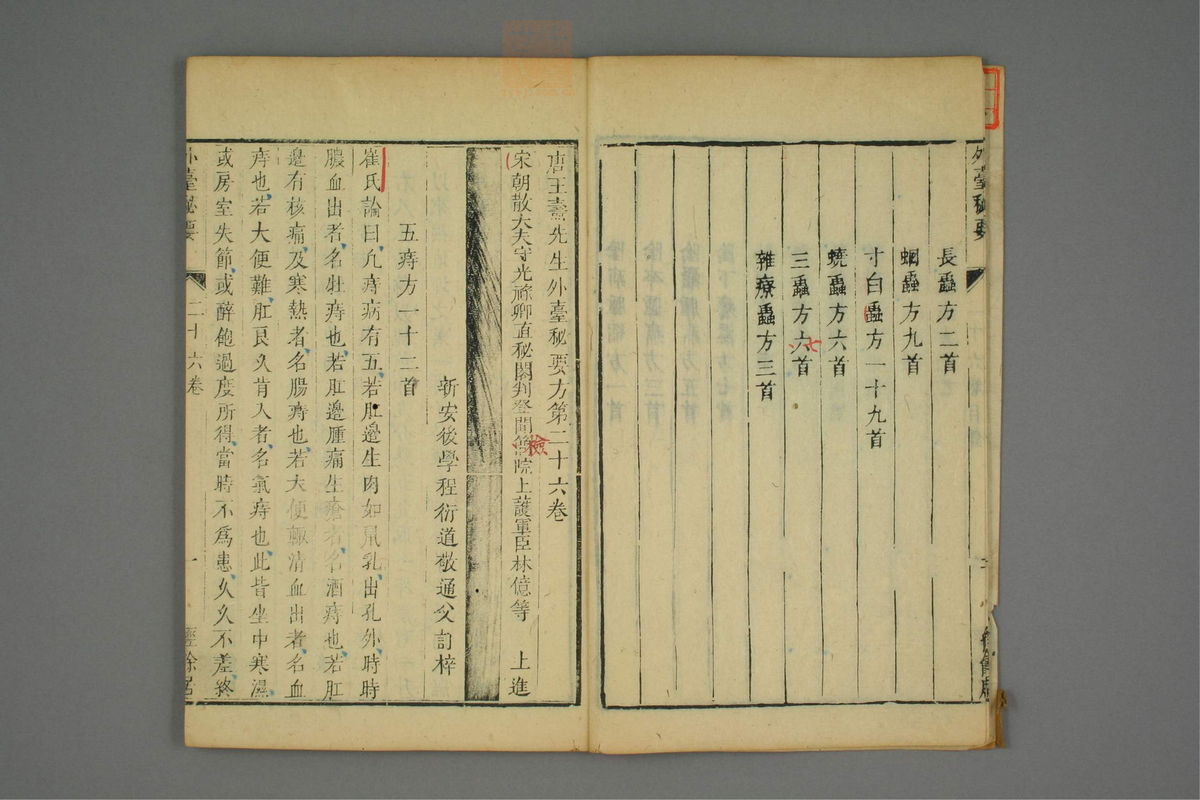 外臺秘要
長蟲方二首
蛔蟲方九首
寸白蟲方一十九首
蟯蟲方六首
三蟲方六首
七
雜療蟲方三首
唐王燾先生外臺秘要方第二十六卷
宋朝散大夫守光祿卿直秘閣判登聞簡院上護軍臣林億等 上進
檢
新安後學程衍道敬通父訂梓
五痔方一十二首
崔氏論曰凡痔病有五若肛邊生肉如鼠乳出孔外時時
膿血出者名牡痔也若肛邊腫痛生瘡者名酒痔也若肛
邊有核痛及寒熱者名腸痔也若大便輒清血出者名血
痔也若大便難肛良久肯入者名氣痔也此皆坐中寒濕
或房室失節或醉飽過度所得當時不爲患久久不差終
外臺秘要 二十六卷 一 經餘居